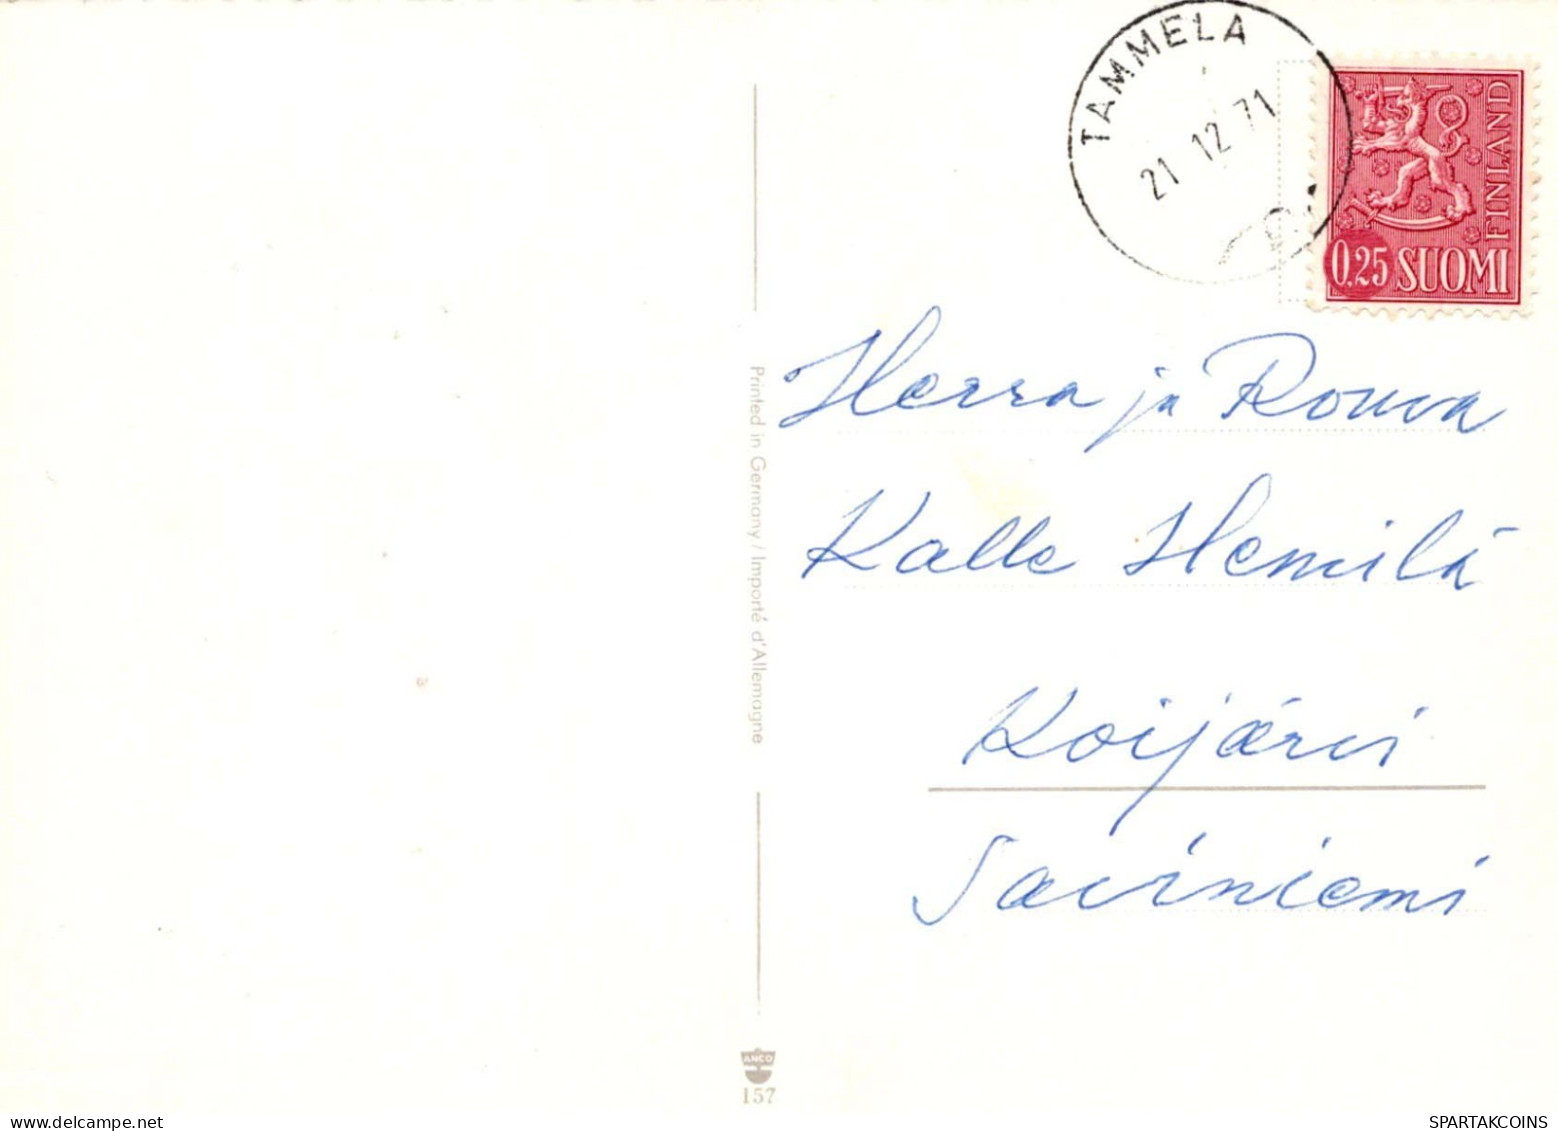 TAMMELA
21 12 71
FINLAND
0,25 SUOMI
Herra ja Rouva
Kalle Hemilä
Koijärvi
Saviniemi
Printed in Germany / Importé d'Allemagne
ANCO
157
SPARTAKCOINS